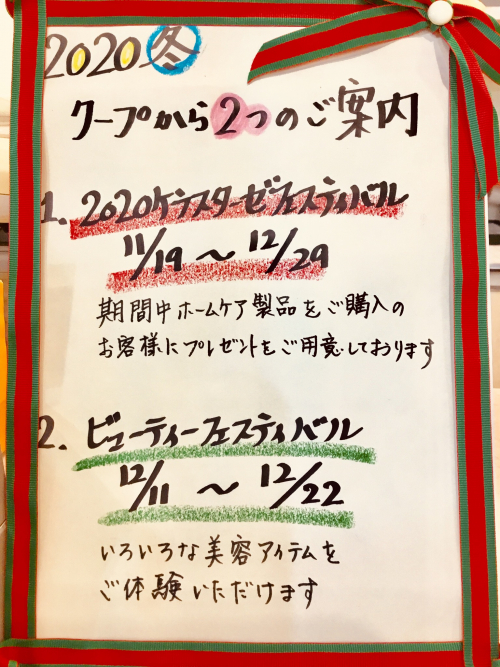 2020冬
クープから2つのご案内
1. 2020ケラスターゼフェスティバル
11/19～12/29
期間中ホームケア製品をご購入の
お客様にプレゼントをご用意しております
2. ビューティーフェスティバル
12/11～12/22
いろいろな美容アイテムを
ご体験いただけます